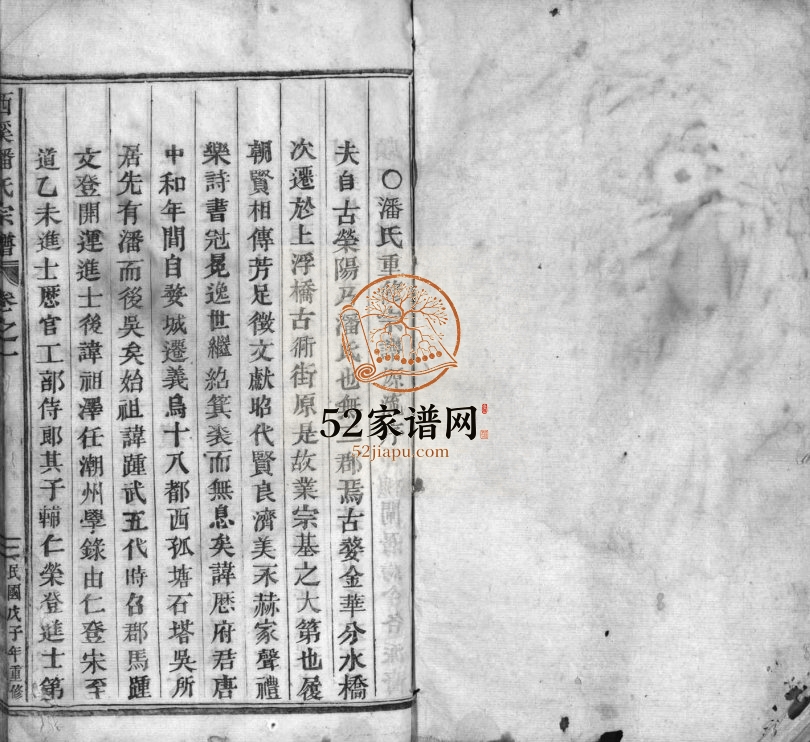 〇潘氏重修宗譜源流
夫自古榮陽乃潘氏也無二郡焉古婺金華分水橋
次遷於上浮橋古衕街原是故業宗基之大第也履
朝賢相傳芳足徵文獻昭代賢良濟美丕赫家聲禮
樂詩書冠冕逸世繼紹箕裘而無息矣諱歷府君唐
中和年間自婺城遷義烏十八都西孤塘石塔吳所
居先有潘而後吳矣始祖諱踵武五代時召郡馬踵
文登開運進士後諱祖澤任潮州學錄由仁登宋至
道乙未進士歷官工部侍郎其子輔仁榮登進士第
西溪潘氏宗譜 卷之一
民國戊子年重修
52家谱网
52jiapu.com